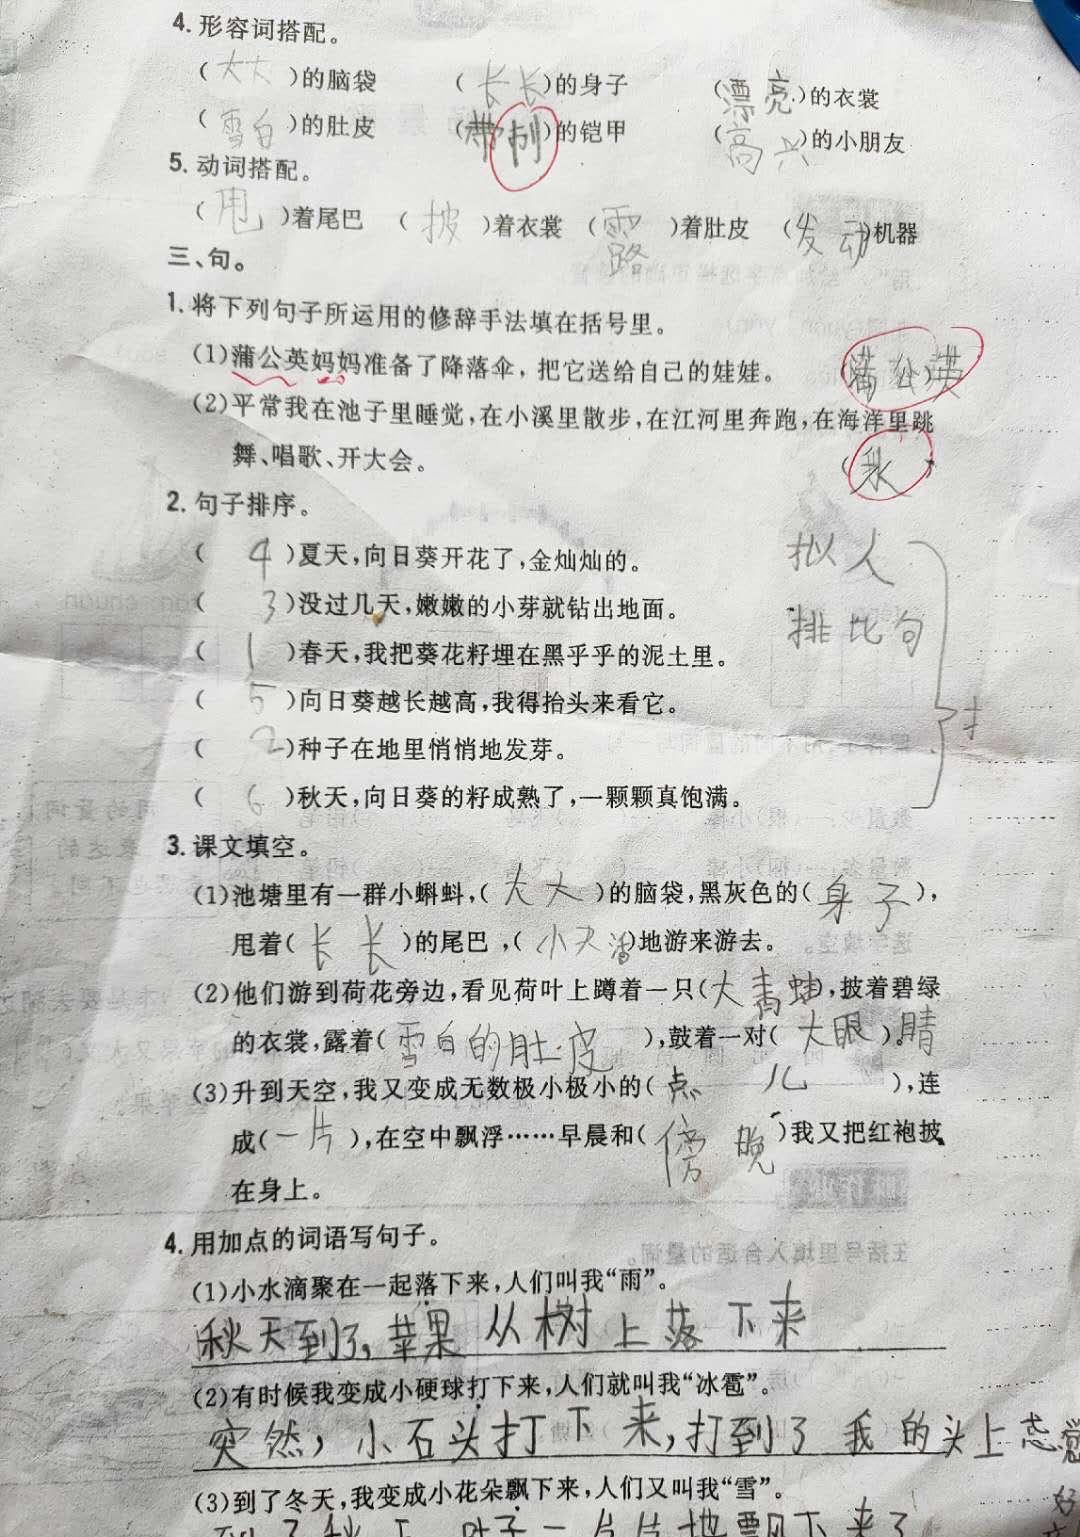 4. 形容词搭配。
(大大)的脑袋 (长长)的身子 (漂亮)的衣裳
(雪白)的肚皮 ()的铠甲 (高兴)的小朋友
5. 动词搭配。
(甩)着尾巴 (披)着衣裳 (露)着肚皮 (发动)机器
三、句。
1. 将下列句子所运用的修辞手法填在括号里。
(1)蒲公英妈妈准备了降落伞，把它送给自己的娃娃。 (蒲公英)
(2)平常我在池子里睡觉，在小溪里散步，在江河里奔跑，在海洋里跳
舞、唱歌、开大会。 ()
2. 句子排序。
(4)夏天，向日葵开花了，金灿灿的。 拟人
(3)没过几天，嫩嫩的小芽就钻出地面。 排比句
(1)春天，我把葵花籽埋在黑乎乎的泥土里。
(5)向日葵越长越高，我得抬头来看它。
(2)种子在地里悄悄地发芽。
(6)秋天，向日葵的籽成熟了，一颗颗真饱满。
3. 课文填空。
(1)池塘里有一群小蝌蚪，(大大)的脑袋，黑灰色的(身子)，
甩着(长长)的尾巴，()地游来游去。
(2)他们游到荷花旁边，看见荷叶上蹲着一只(大青蛙)，披着碧绿
的衣裳，露着(雪白的肚皮)，鼓着一对(大眼)。睛
(3)升到天空，我又变成无数极小极小的(点儿)，连
成(一片)，在空中飘浮……早晨和(傍晚)我又把红袍披
在身上。
4. 用加点的词语写句子。
(1)小水滴聚在一起落下来，人们叫我“雨”。
秋天到了，苹果从树上落下来
(2)有时候我变成小硬球打下来，人们就叫我“冰雹”。
突然，小石头打下来，打到了我的头上
(3)到了冬天，我变成小花朵飘下来，人们又叫我“雪”。